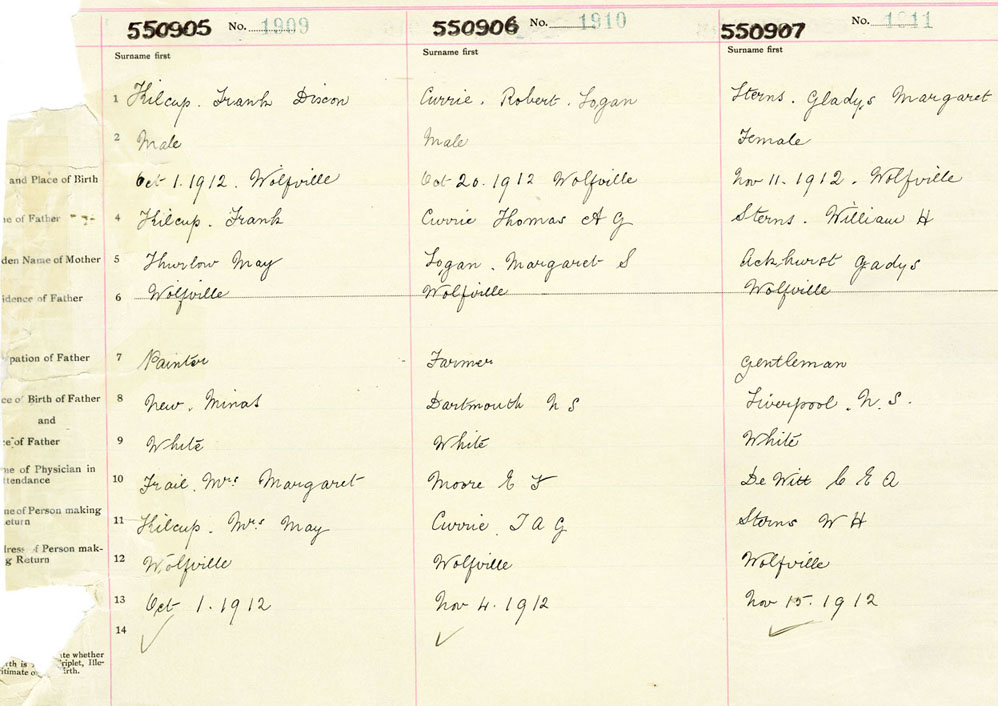 550905 No. 1909 550906 No. 1910 550907 No. 1911
Surname first Surname first Surname first
1 Kilcup. Frank Discon Currie. Robert. Logan Sterns. Gladys Margaret
2 Male Male Female
and Place of Birth Oct 1. 1912. Wolfville Oct 20. 1912 Wolfville Nov 11. 1912. Wolfville
ne of Father 4 Kilcup. Frank Currie Thomas A G Sterns. William H
den Name of Mother 5 Thurlow May Logan. Margaret S Ackhurst Gladys
idence of Father 6 Wolfville Wolfville Wolfville
pation of Father 7 Painter Farmer Gentleman
ce of Birth of Father 8 New. Minas Dartmouth N S Liverpool. N.S.
and
ce of Father 9 White White White
ne of Physician in
ttendance 10 Trail. Mrs Margaret Moore E F De Witt C E A
ne of Person making
eturn 11 Kilcup. Mrs May Currie. T A G Sterns W H
dress of Person mak-
g Return 12 Wolfville Wolfville Wolfville
13 Oct 1. 1912 Nov 4. 1912 Nov 15. 1912
14
te whether
rth is Triplet, Ille-
itimate o irth.